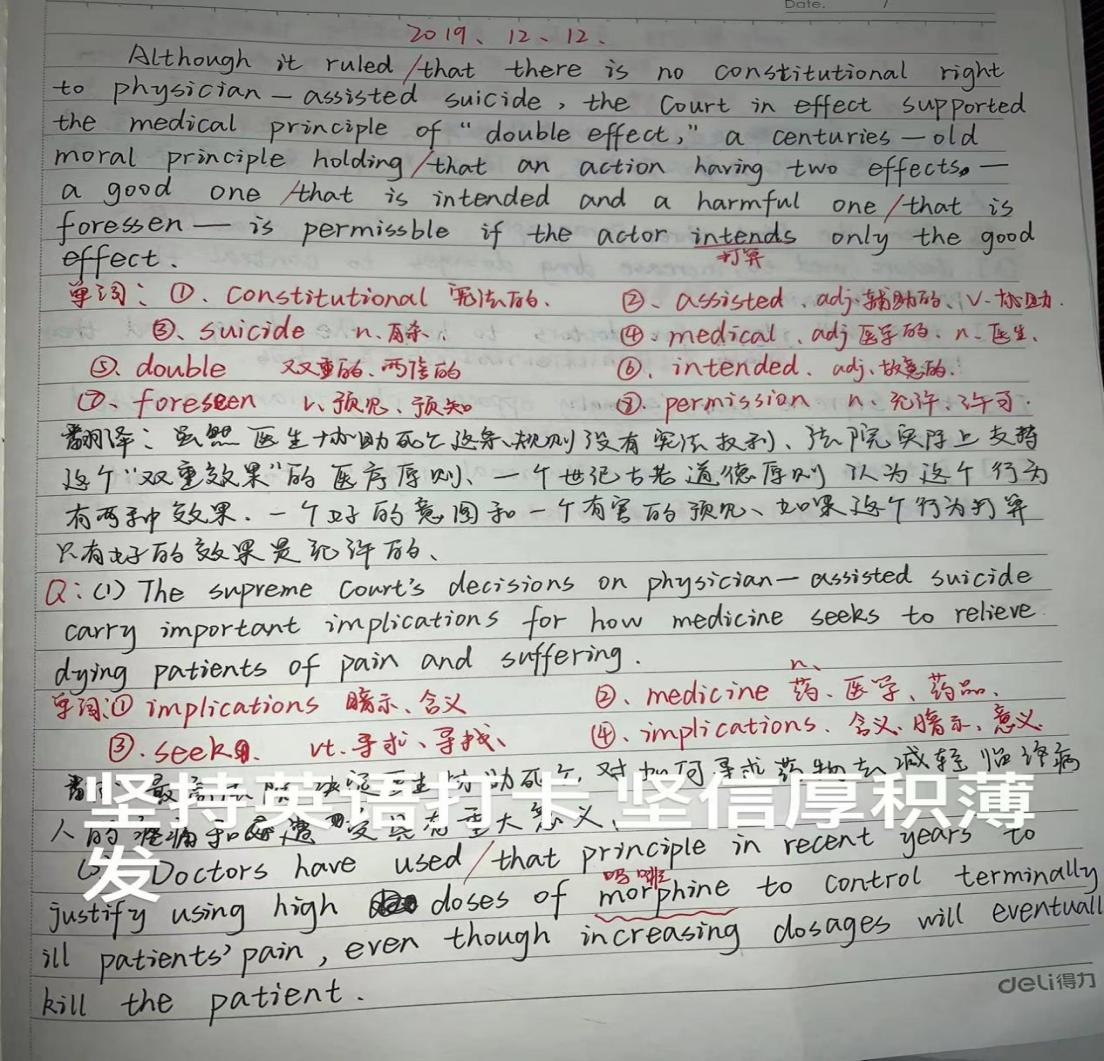 Date. /
2019、12、12、
Although it ruled/that there is no constitutional right
to physician - assisted suicide, the Court in effect supported
the medical principle of "double effect," a centuries - old
moral principle holding/that an action having two effects. —
a good one/that is intended and a harmful one/that is
foressen — is permissble if the actor intends only the good
打算
effect.
单词: ①、constitutional 宪法的. ②、assisted. adj.辅助的、v.协助.
③、suicide n.自杀. ④、medical. adj 医学的. n.医生.
⑤、double 双重的、两倍的 ⑥、intended. adj.故意的.
⑦、foreseen v.预见、预知 ⑧. permission n.允许、许可.
翻译: 虽然医生协助死亡这条规则没有宪法权利、法院实际上支持
这个“双重效果”的医疗原则、一个世纪古老道德原则 认为这个行为
有两种效果. 一个好的意图和一个有害的预见、如果这个行为打算
只有好的效果是允许的、
Q: (1) The supreme Court's decisions on physician - assisted suicide
carry important implications for how medicine seeks to relieve
dying patients of pain and suffering.
n、
单词:① implications 暗示、含义 ②、medicine 药、医学、药品.
③.seek vt.寻求、寻找、 ④、implications. 含义、暗示、意义.
最高 死亡, 对如何寻求药物去减轻临终病
坚持英语打卡 坚信厚积薄
人的 重大意义、
发
Doctors have used/that principle in recent years to
吗啡
justify using high doses of morphine to control terminally
ill patients' pain, even though increasing dosages will eventuall
kill the patient.
deli得力